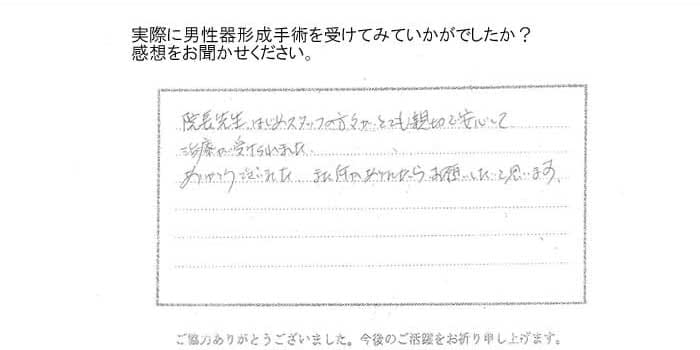 実際に男性器形成手術を受けてみていかがでしたか？
感想をお聞かせください。
院長先生、はじめスタッフの方々が、とても親切で安心して
治療が受けられました。
ありがとうございました。また何かありましたらお願いしたいと思います。
ご協力ありがとうございました。今後のご活躍をお祈り申し上げます。